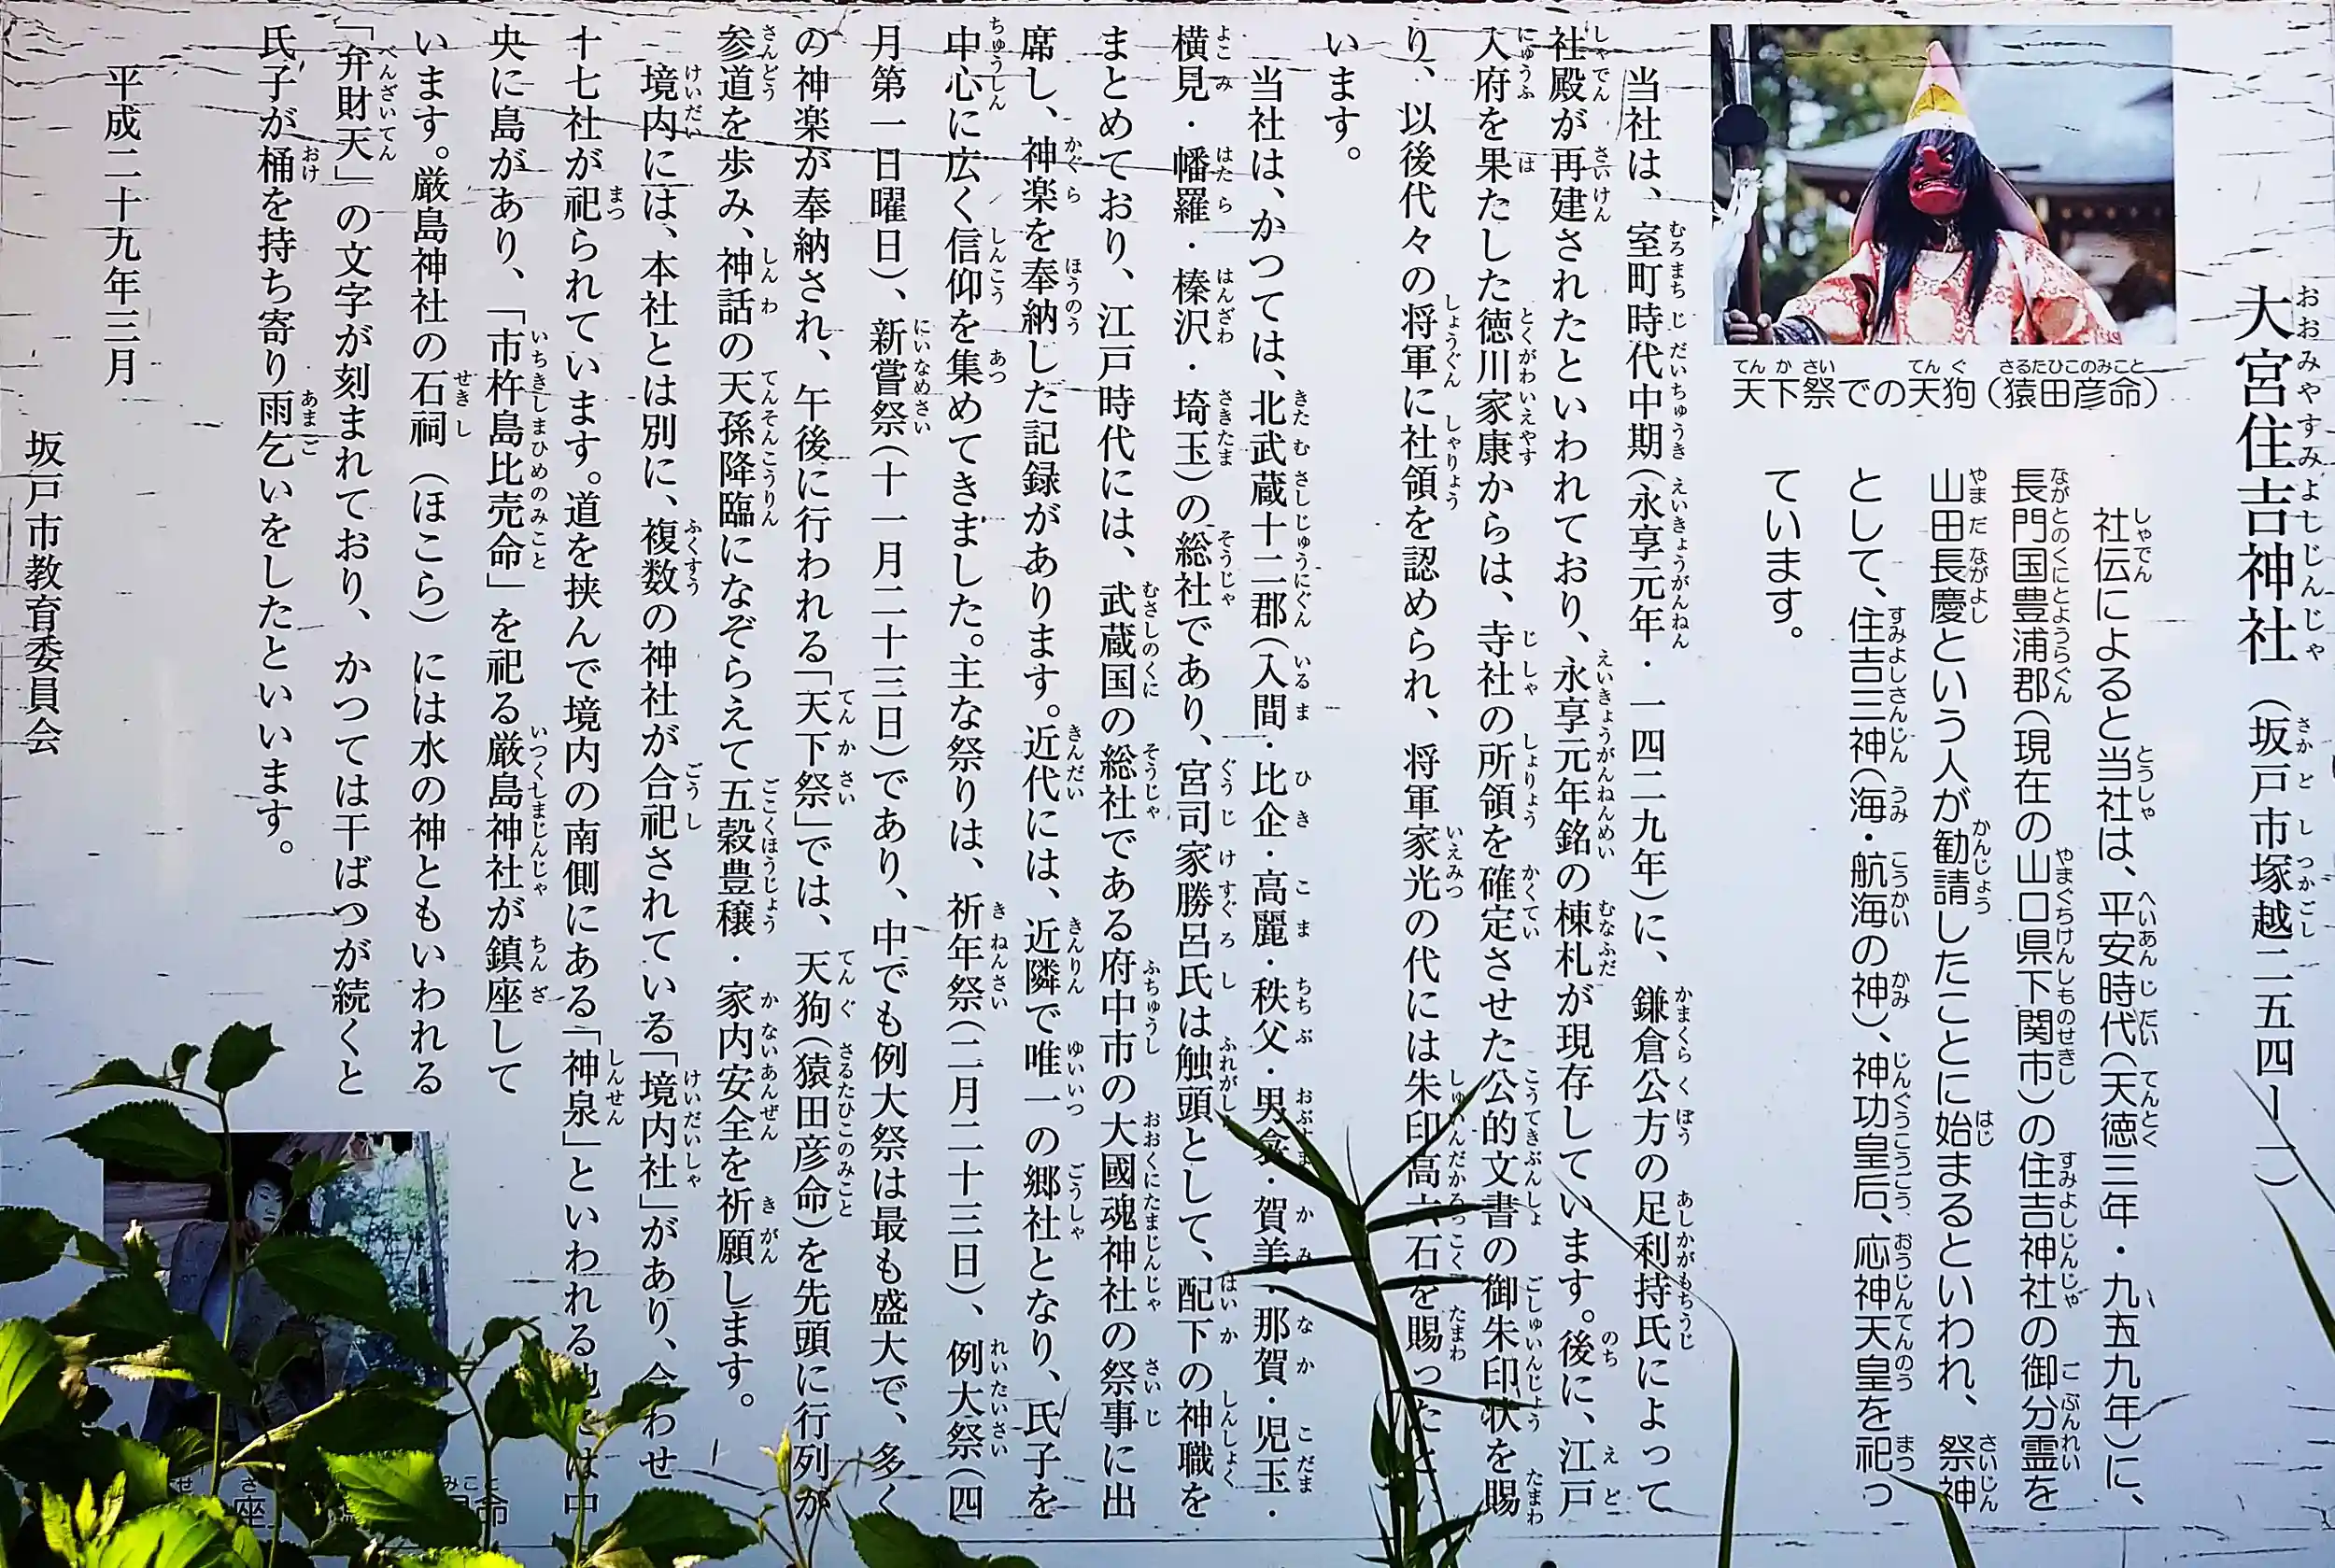 大宮住吉神社（坂戸市塚越二五四ー一）
天下祭での天狗（猿田彦命）
社伝によると当社は、平安時代（天徳三年・九五九年）に、
長門国豊浦郡（現在の山口県下関市）の住吉神社の御分霊を
山田長慶という人が勧請したことに始まるといわれ、祭神
として、住吉三神（海・航海の神）、神功皇后、応神天皇を祀っ
ています。
当社は、室町時代中期（永享元年・一四二九年）に、鎌倉公方の足利持氏によって
社殿が再建されたといわれており、永享元年銘の棟札が現存しています。後に、江戸
入府を果たした徳川家康からは、寺社の所領を確定させた公的文書の御朱印状を賜
り、以後代々の将軍に社領を認められ、将軍家光の代には朱印高六石を賜ったと
います。
当社は、かつては、北武蔵十二郡（入間・比企・高麗・秩父・男衾・賀美・那賀・児玉・
横見・幡羅・榛沢・埼玉）の総社であり、宮司家勝呂氏は触頭として、配下の神職を
まとめており、江戸時代には、武蔵国の総社である府中市の大國魂神社の祭事に出
席し、神楽を奉納した記録があります。近代には、近隣で唯一の郷社となり、氏子を
中心に広く信仰を集めてきました。主な祭りは、祈年祭（二月二十三日）、例大祭（四
月第一日曜日）、新嘗祭（十一月二十三日）であり、中でも例大祭は最も盛大で、多く
の神楽が奉納され、午後に行われる「天下祭」では、天狗（猿田彦命）を先頭に行列が
参道を歩み、神話の天孫降臨になぞらえて五穀豊穣・家内安全を祈願します。
境内には、本社とは別に、複数の神社が合祀されている「境内社」があり、合わせ
十七社が祀られています。道を挟んで境内の南側にある「神泉」といわれる池には中
央に島があり、「市杵島比売命」を祀る厳島神社が鎮座して
います。厳島神社の石祠（ほこら）には水の神ともいわれる
「弁財天」の文字が刻まれており、かつては干ばつが続くと
氏子が桶を持ち寄り雨乞いをしたといいます。
座 命
平成二十九年三月
坂戸市教育委員会